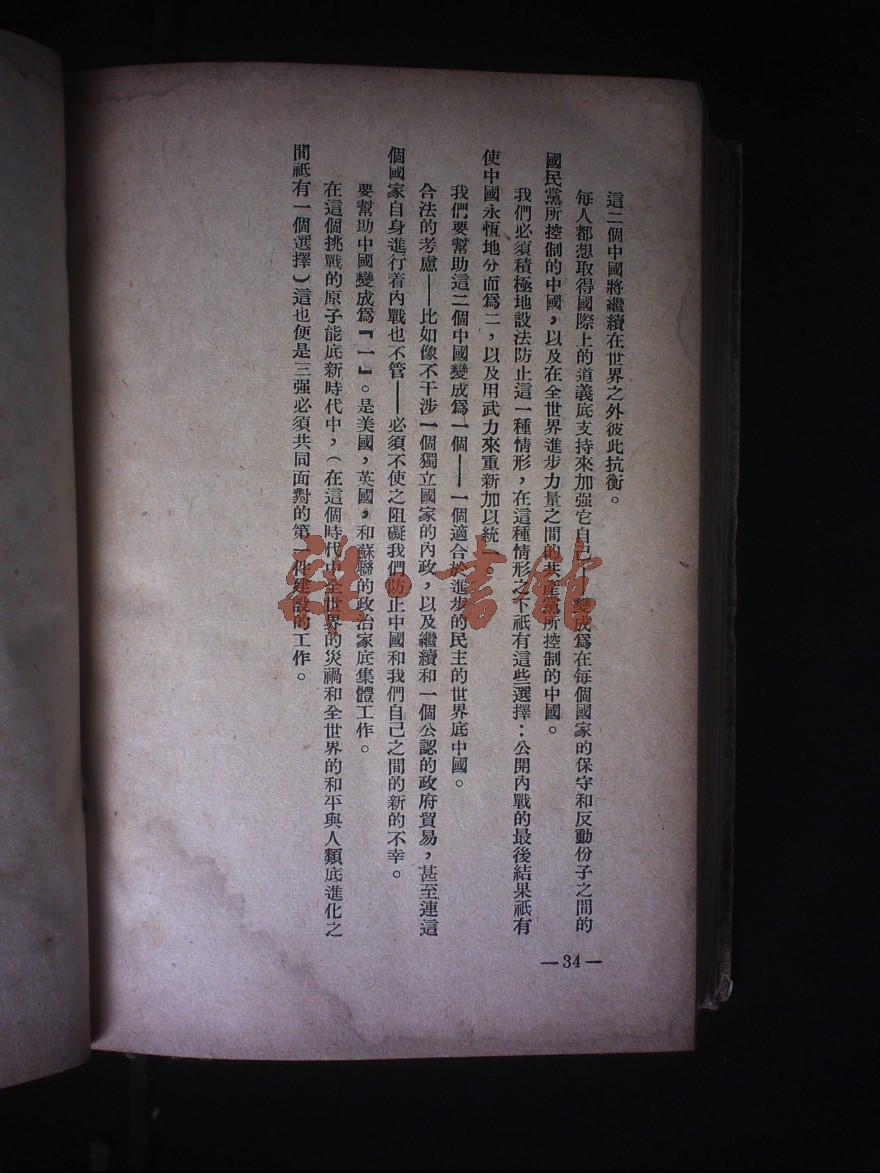 這二個中國將繼續在世界之外彼此抗衡。
每人都想取得國際上的道義底支持來加强它自己——變成爲在每個國家的保守和反動份子之間的
國民黨所控制的中國，以及在全世界進步力量之間的共產黨所控制的中國。
我們必須積極地設法防止這一種情形，在這種情形之下祇有這些選擇：公開內戰的最後結果祇有
使中國永恆地分而爲二，以及用武力來重新加以統一。
我們要幫助這二個中國變成爲一個——一個適合於進步的民主的世界底中國。
合法的考慮——比如像不干涉一個獨立國家的內政，以及繼續和一個公認的政府貿易，甚至連這
個國家自身進行着內戰也不管——必須不使之阻礙我們防止中國和我們自己之間的新的不幸。
要幫助中國變成爲『一』。是美國，英國，和蘇聯的政治家底集體工作。
在這個挑戰的原子能底新時代中，（在這個時代中全世界的災禍和全世界的和平與人類底進化之
間祇有一個選擇）這也便是三强必須共同面對的第一件建設的工作。
—34—
雜·書館